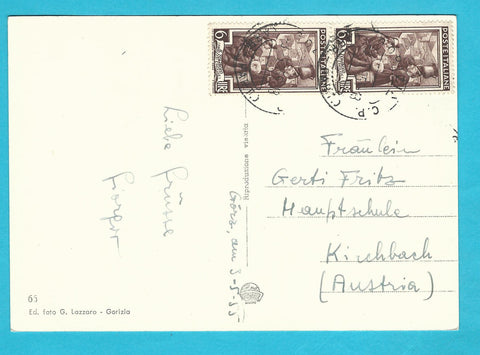 6 LIRE
POSTE ITALIANE
6 LIRE
POSTE ITALIANE
Liebe Grüsse
Görz, am 3-5-55
Riproduzione vietata
Fräulein
Gerti Fritz
Hauptschule
Kirchbach
(Austria)
65
Ed. foto G. Lazzaro - Gorizia